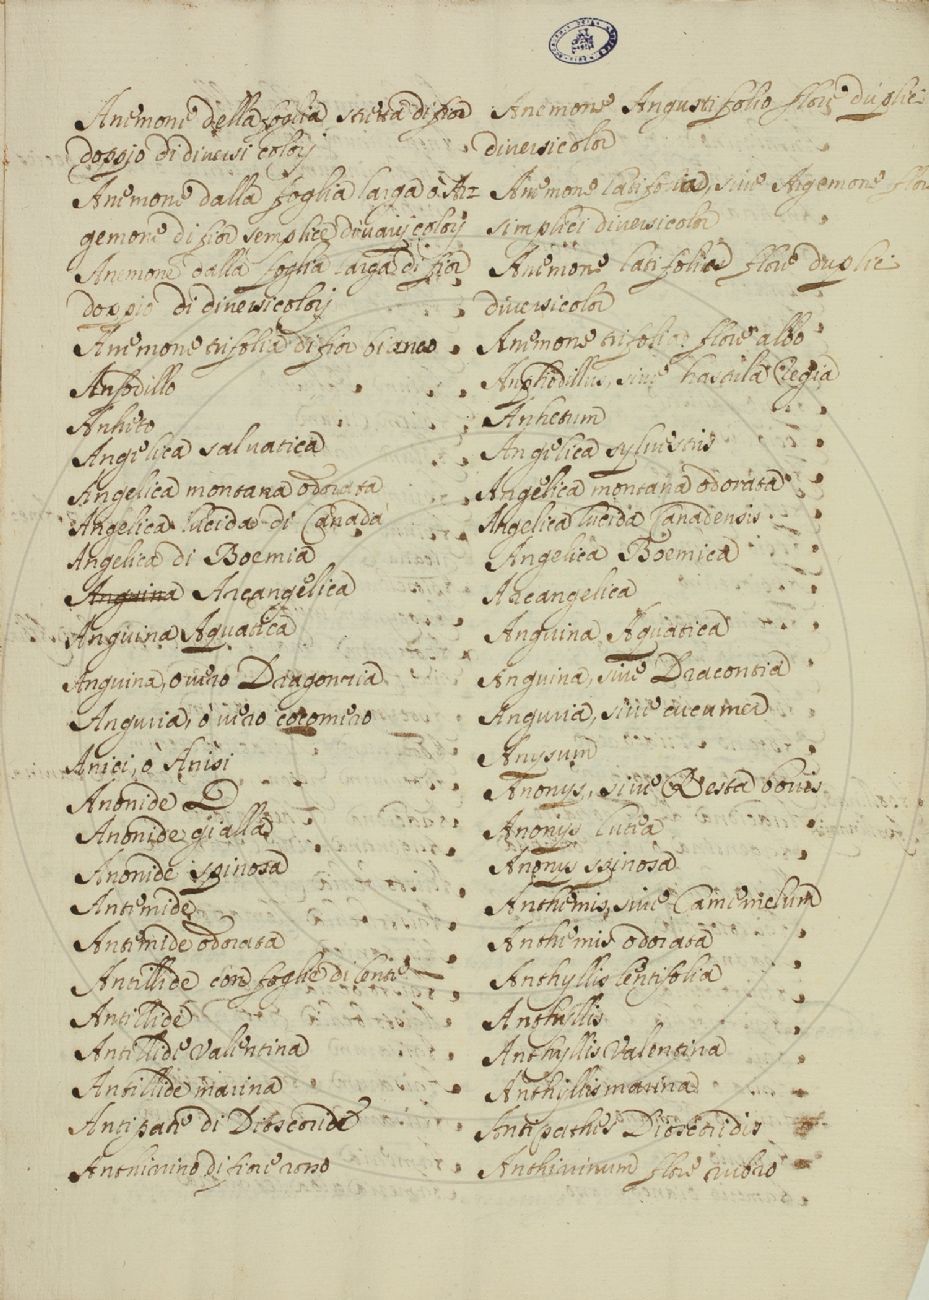 Anemone della foglia stretta di fior Anemone Angustifolio flore duplici
doppio di diversi colorj diversicolor
Anemone dalla foglia larga ò Ar= Anemone latifolia, sive Argemone flore
gemone di fior semplice di varij colorj simplici diversicolor
Anemone dalla foglia larga di fior Anemone latifolio flore duplici
doppio di diversi colorj diversicolor
Anemone trifolia di fior bianco Anemone trifolia flore albo
Anfodillo Asphodillus, sive hastula Regia
Anhito Anhetum
Angelica salvatica Angelica sylvestris
Angelica montana odorata Angelica montana odorata
Angelica lucida di Canada Angelica lucida Canadensis
Angelica di Boemia Angelica Boemica
Anguina Arcangelica Arcangelica
Anguina Aquatica Anguina Aquatica
Anguina, overo Dragontia Anguina, sive Dracontia
Anguria, ò vero cocomero Anguria, sive cucumer
Anici, ò Anisi Anysum
Anonide Anonys, sive Resta bovis
Anonide gialla Anonys lutea
Anonide spinosa Anonys spinosa
Antemide Anthemis, sive Camemelum
Antemide odorata Anthemis odorata
Antillide con foglie di lente Anthyllis lentifolia
Antillide Anthyllis
Antillide Valentina Anthyllis Valentina
Antillide marina Anthyllis marina
Antipate di Dioscoride Antipathes Dioscoridis
Anthirrino di fiore rosso Anthirrinum flore rubro